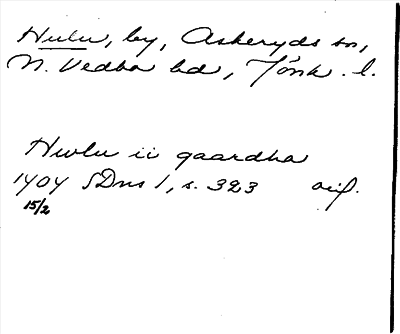 Hulu, by, Askeryds sn,
N. Vedbo hd, Jönk. l.
Hwlu ii gaardha
1404 SDns 1, s. 323 oeif.
15/2